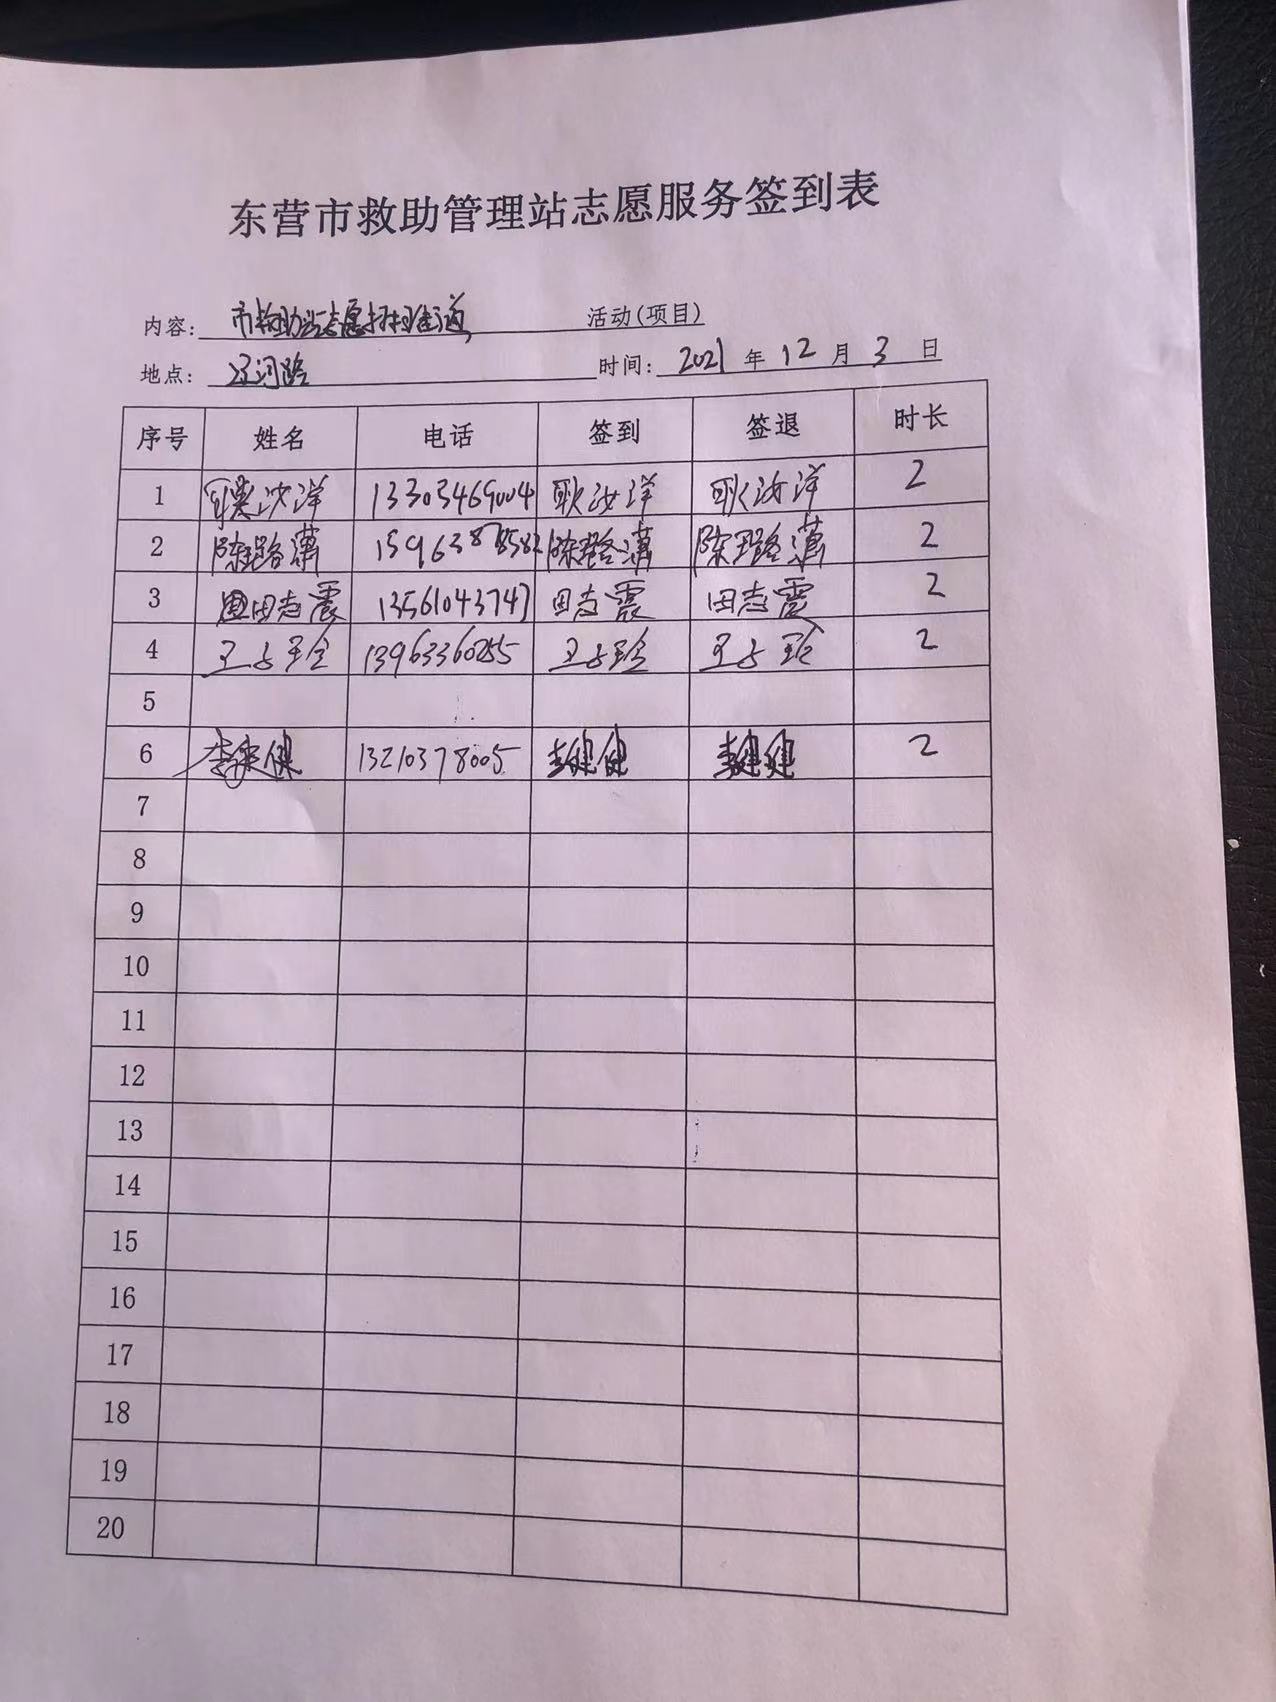 东营市救助管理站志愿服务签到表
内容: 市救助站志愿 活动(项目)
地点: 辽河路 时间: 2021 年 12 月 3 日
序号 姓名 电话 签到 签退 时长
1 汝洋 13303469004 耿汝洋 耿汝洋 2
2 陈璐潇 1596387858 陈璐潇 陈璐潇 2
3 田志震 13561043747 田志震 田志震 2
4 王玉珍 13963360255 王玉珍 王玉珍 2
5
6 李健 13210378005 李健健 李健健 2
7
8
9
10
11
12
13
14
15
16
17
18
19
20